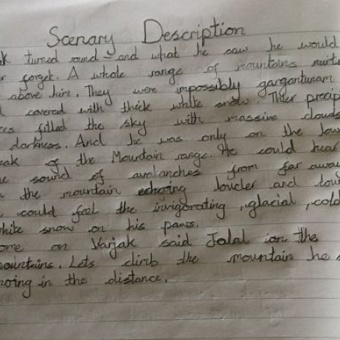 Scenary Description
turned round and what he saw he would
forget. A whole range of mountains
above him. They were impossibly gargantuan
covered with thick white snow. Their
filled the sky with massive clouds
darkness. And he was only on the
of the Mountain range. He could hear
sound of avalanches from far away
the mountain echoing louder and
could feel the invigorating, glacial, cold
white snow on his paws.
on Varjak said Jalal on the
mountains. Lets climb the mountain he
in the distance.